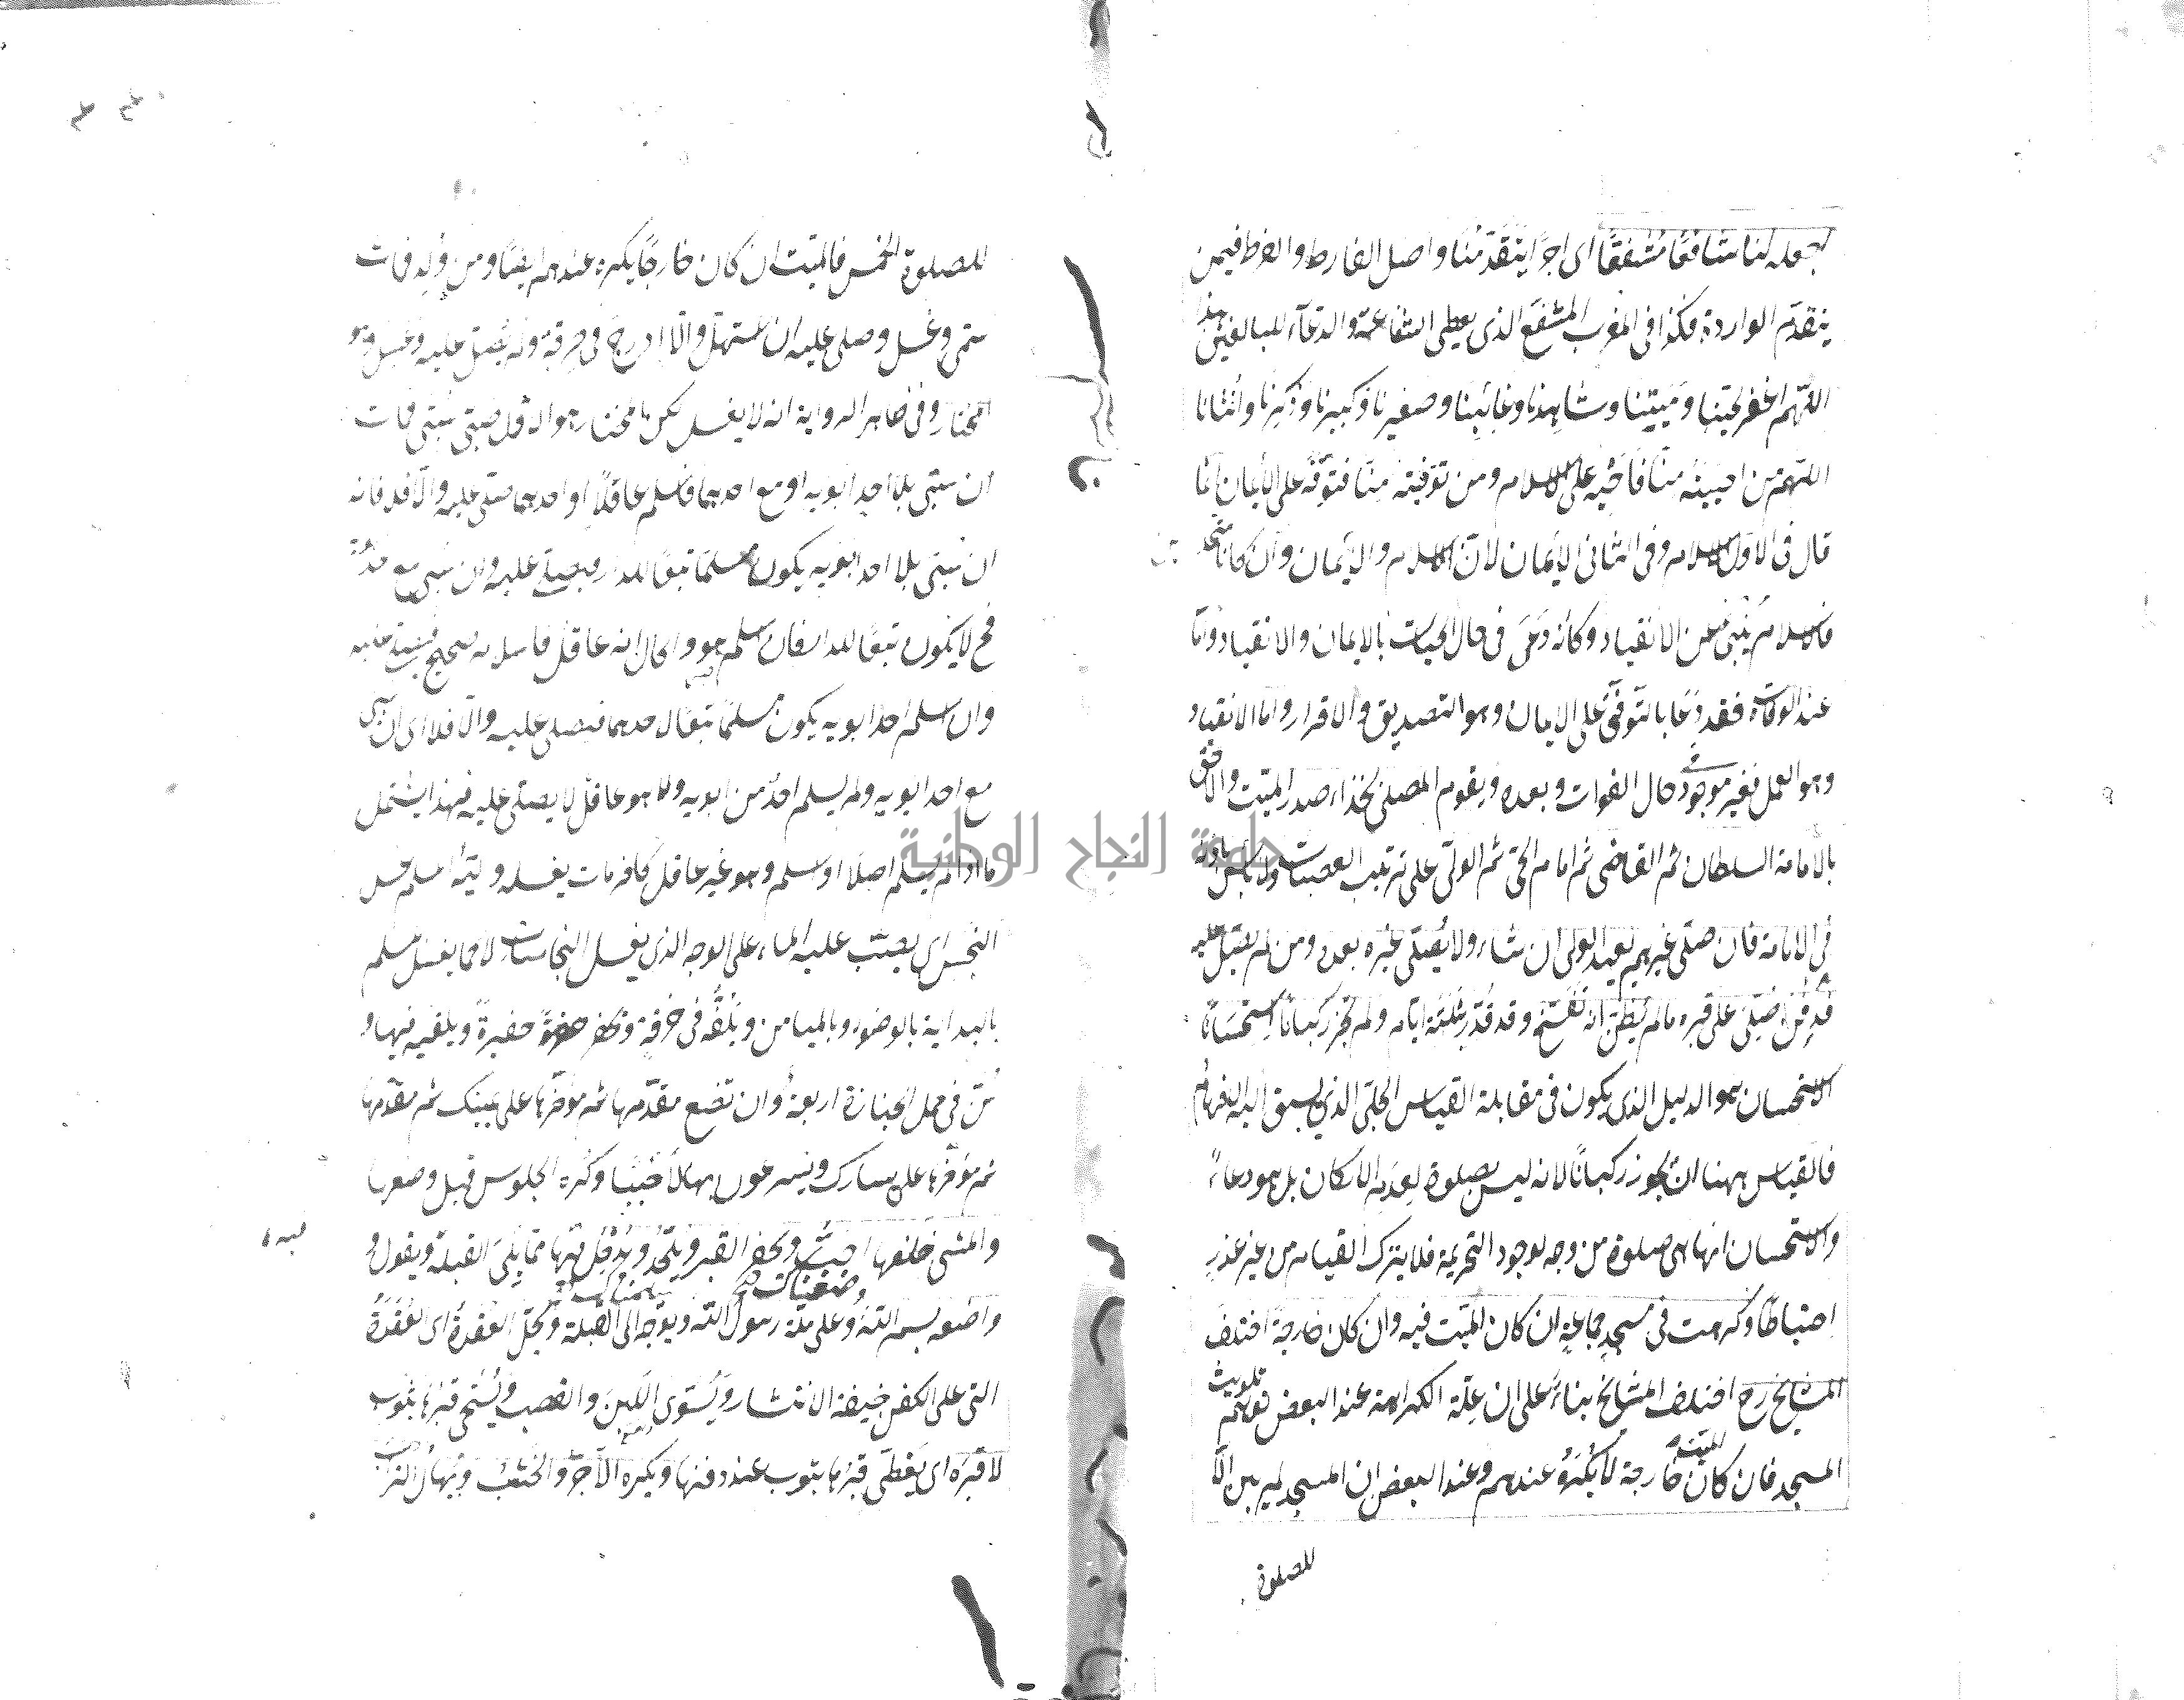 اجعله لنا شافعًا مُشفعًا اى اجرًا يتقدّمُنا واصل الفارط والفرط فيمن
يتقدّم الواردة كذا فى المغرب المشفع الذى يعطى الشفاعة والدعاء للبالغين هذا
اللهم اغفر لحينا وميتنا وشاهدنا وغائبنا وصغيرنا وكبيرنا وذكرنا وانثانا
اللهم من احييته منّا فاحيه على الاسلام ومن توفيته منّا فتوفّه على الايمان انما
قال فى الاول الاسلام وفى الثانى الايمان لان الاسلام والايمان وان كانا متحد ين
فالاسلام ينبئ عن الانقياد وكأنه دعى فى حال الحيات بالايمان والانقياد وامّا
عند الوفات فقد دعا بالتوفّى على الايمان وهو التصديق والاقرار واما الانقياد
وهو العمل فغير موجود فى حال الفوات وبعده ويقوم المصلى بحذاء صدر الميّت والاحق
بالامامة السلطان ثم القاضى ثم امام الحىّ ثم الولىّ على ترتيب العصبات ولا بأس باذنه
فى الامامة فان صلّى غيرهم يعيد الولى ان شاء ولا يُصلّى غيره بعده ومن لم يصل عليه
فدُفن صُلّى على قبره مالم يُظن انه تفسّخ وقد قُدّر بثلثة ايام ولم تجز ركبانًا استحسانًا
الاستحسان هو الدليل الذى يكون فى مقابلة القياس الجلىّ الذى يسبق اليه الافهام
فالقياس ههنا ان تجوز ركبانًا لانه ليس بصلوة لعدم الاركان بل هو دعاءٌ
والاستحسان انها هى صلوة من وجه لوجود التحريمة فلا يترك القيام من غير عذرٍ
احتياطًا وكرهت فى مسجد جماعةٍ ان كان الميّت فيه وان كان خارجة اختلف
المشايخ رح اختلف المشايخ بناءً على ان علّة الكراهة عند البعض توهّم تلويث
المسجد فان كان الميّت خارجة لا يُكرهُ عندهم وعند البعض ان المسجد لم يبن الّا
للصلوة
للصلوة الخمس فالميّت ان كان خارجًا يكره عندهم ايضًا ومن وُلِد فمات
سمّى وغسل وصلى عليه ان استهلّ والّا ادرج فى خرقة ولم يُصلّ عليه وغسل وهو
المختار وفى ظاهر الرواية انه لا يغسل لكن المختار هو الاول صبّى سُبى فمات
ان سُبى بلا احد ابويه او مع احدهما فاسلم عاقلًا او احدهما صلى عليه والّا فلا فانه
ان سُبى بلا احد ابويه يكون مسلمًا تبعًا للدار فيصلّى عليه وان سُبى مع
فح لا يكون تبعًا للدار فان اسلم هو والحال انه عاقل فاسلامه صحيح فيصلى عليه
وان اسلم احد ابويه يكون مسلمًا تبعًا لاحدهما فيصلى عليه والّا فلا اى ان سبى
مع احد ابويه ولم يسلم احدٌ من ابويه ولا هو عاقل لا يصلّى عليه فهذا يشتمل
ما اذا لم يسلم اصلًا او اسلم وهو غير عاقل كافر مات يغسله وليّه المسلم غسل
النجس اى يصبّ عليه الماء على الوجه الذى يغسل النجاسات لا كما يغسل مسلم
بالبداية بالوضوء وبالميامن ويُلفّه فى خرقة وتحفر حفرة حفيرةً ويلقيه فيها و
سُنّ فى حمل الجنازة اربعة وان تضع مقدّمها ثم مؤخّرها على يمينك ثم مقدّمها
ثم مؤخّرها على يسارك ويسرعون بها لا خببًا وكُره الجلوس قبل وضعها
والمشى خلفها احبّ ويحفر القبر ويُلحد ويُدخل فيها ممّا يلى القبلة ويقول و
واضعه بسم اللّٰه وعلى ملّة رسول اللّٰه ويوجّه الى القبلة وتُحلّ العقدةُ اى العُقدةُ
التى على الكفن خيفة الانتشار ويُسوّى اللَّبِن والقصب ويُسجّى قبرها بثوب
لا قبره اى يُغطّى قبرها بثوب عند دفنها ويكره الآجر والخشب ويُهال التراب